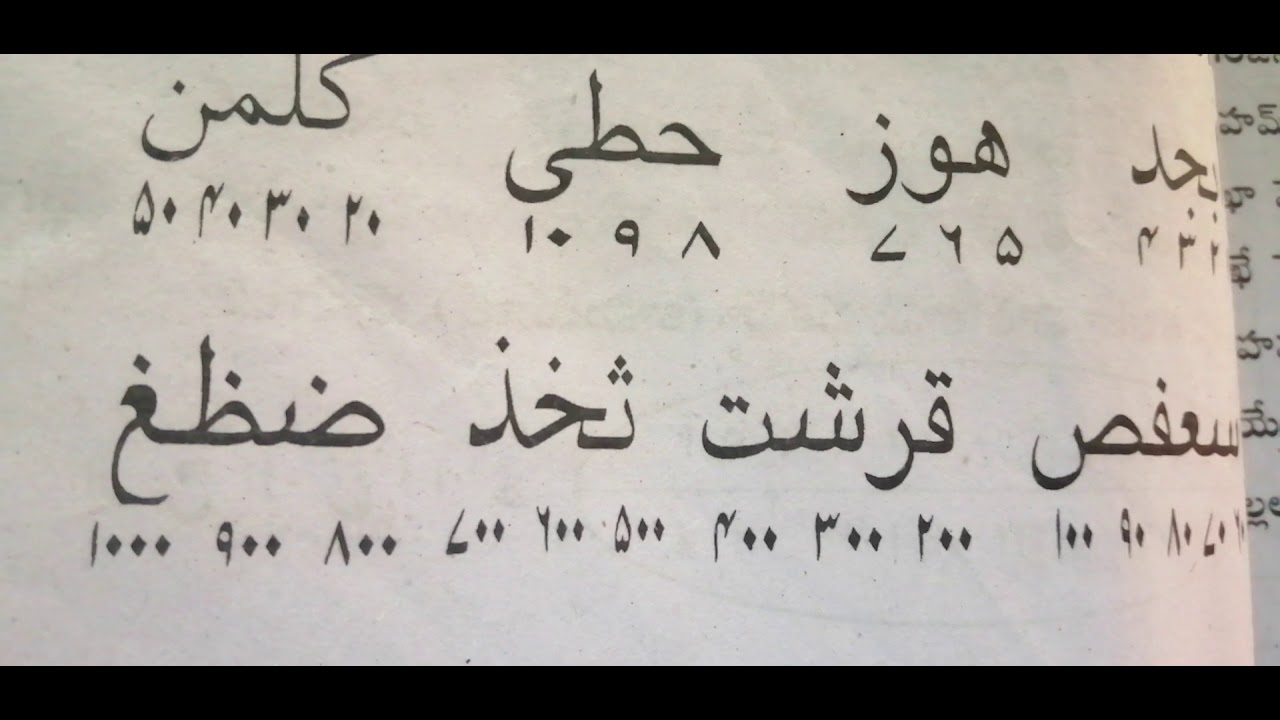 بجد هوز حطي كلمن
۲ ۳ ۴ ۵ ۶ ۷ ۸ ۹ ۱۰ ۲۰ ۳۰ ۴۰ ۵۰
سعفص قرشت ثخذ ضظغ
۷۰ ۸۰ ۹۰ ۱۰۰ ۲۰۰ ۳۰۰ ۴۰۰ ۵۰۰ ۶۰۰ ۷۰۰ ۸۰۰ ۹۰۰ ۱۰۰۰